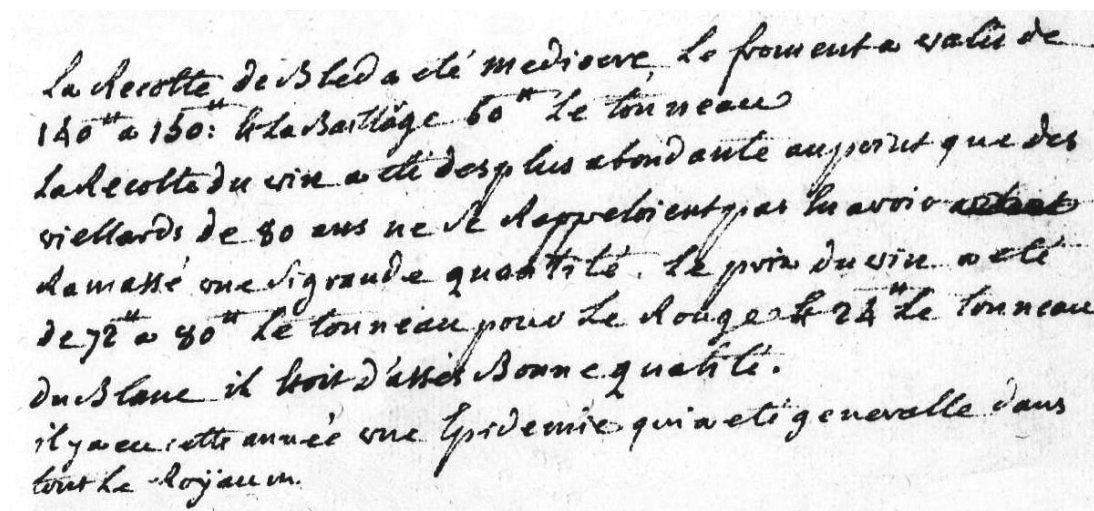 La Recolte de Bled a eté mediocre, Le froment a valu de
140 ᵗᵗ a 150 : Et La Baillage 60 ᵗᵗ Le tonneau
La Recolte du vin a eté des plus abondante au point que des
viellards de 80 ans ne se Rappeloient pas En avoir
Ramassé une Si grande quantité. Le prix du vin a eté
de 72 ᵗᵗ a 80 ᵗᵗ Le tonneau pour Le Rouge Et 24 ᵗᵗ Le tonneau
du Blanc il Etoit d'assés Bonne qualité.
il y a eu cette année une Epidemie qui a eté generalle dans
tout Le Royaum.